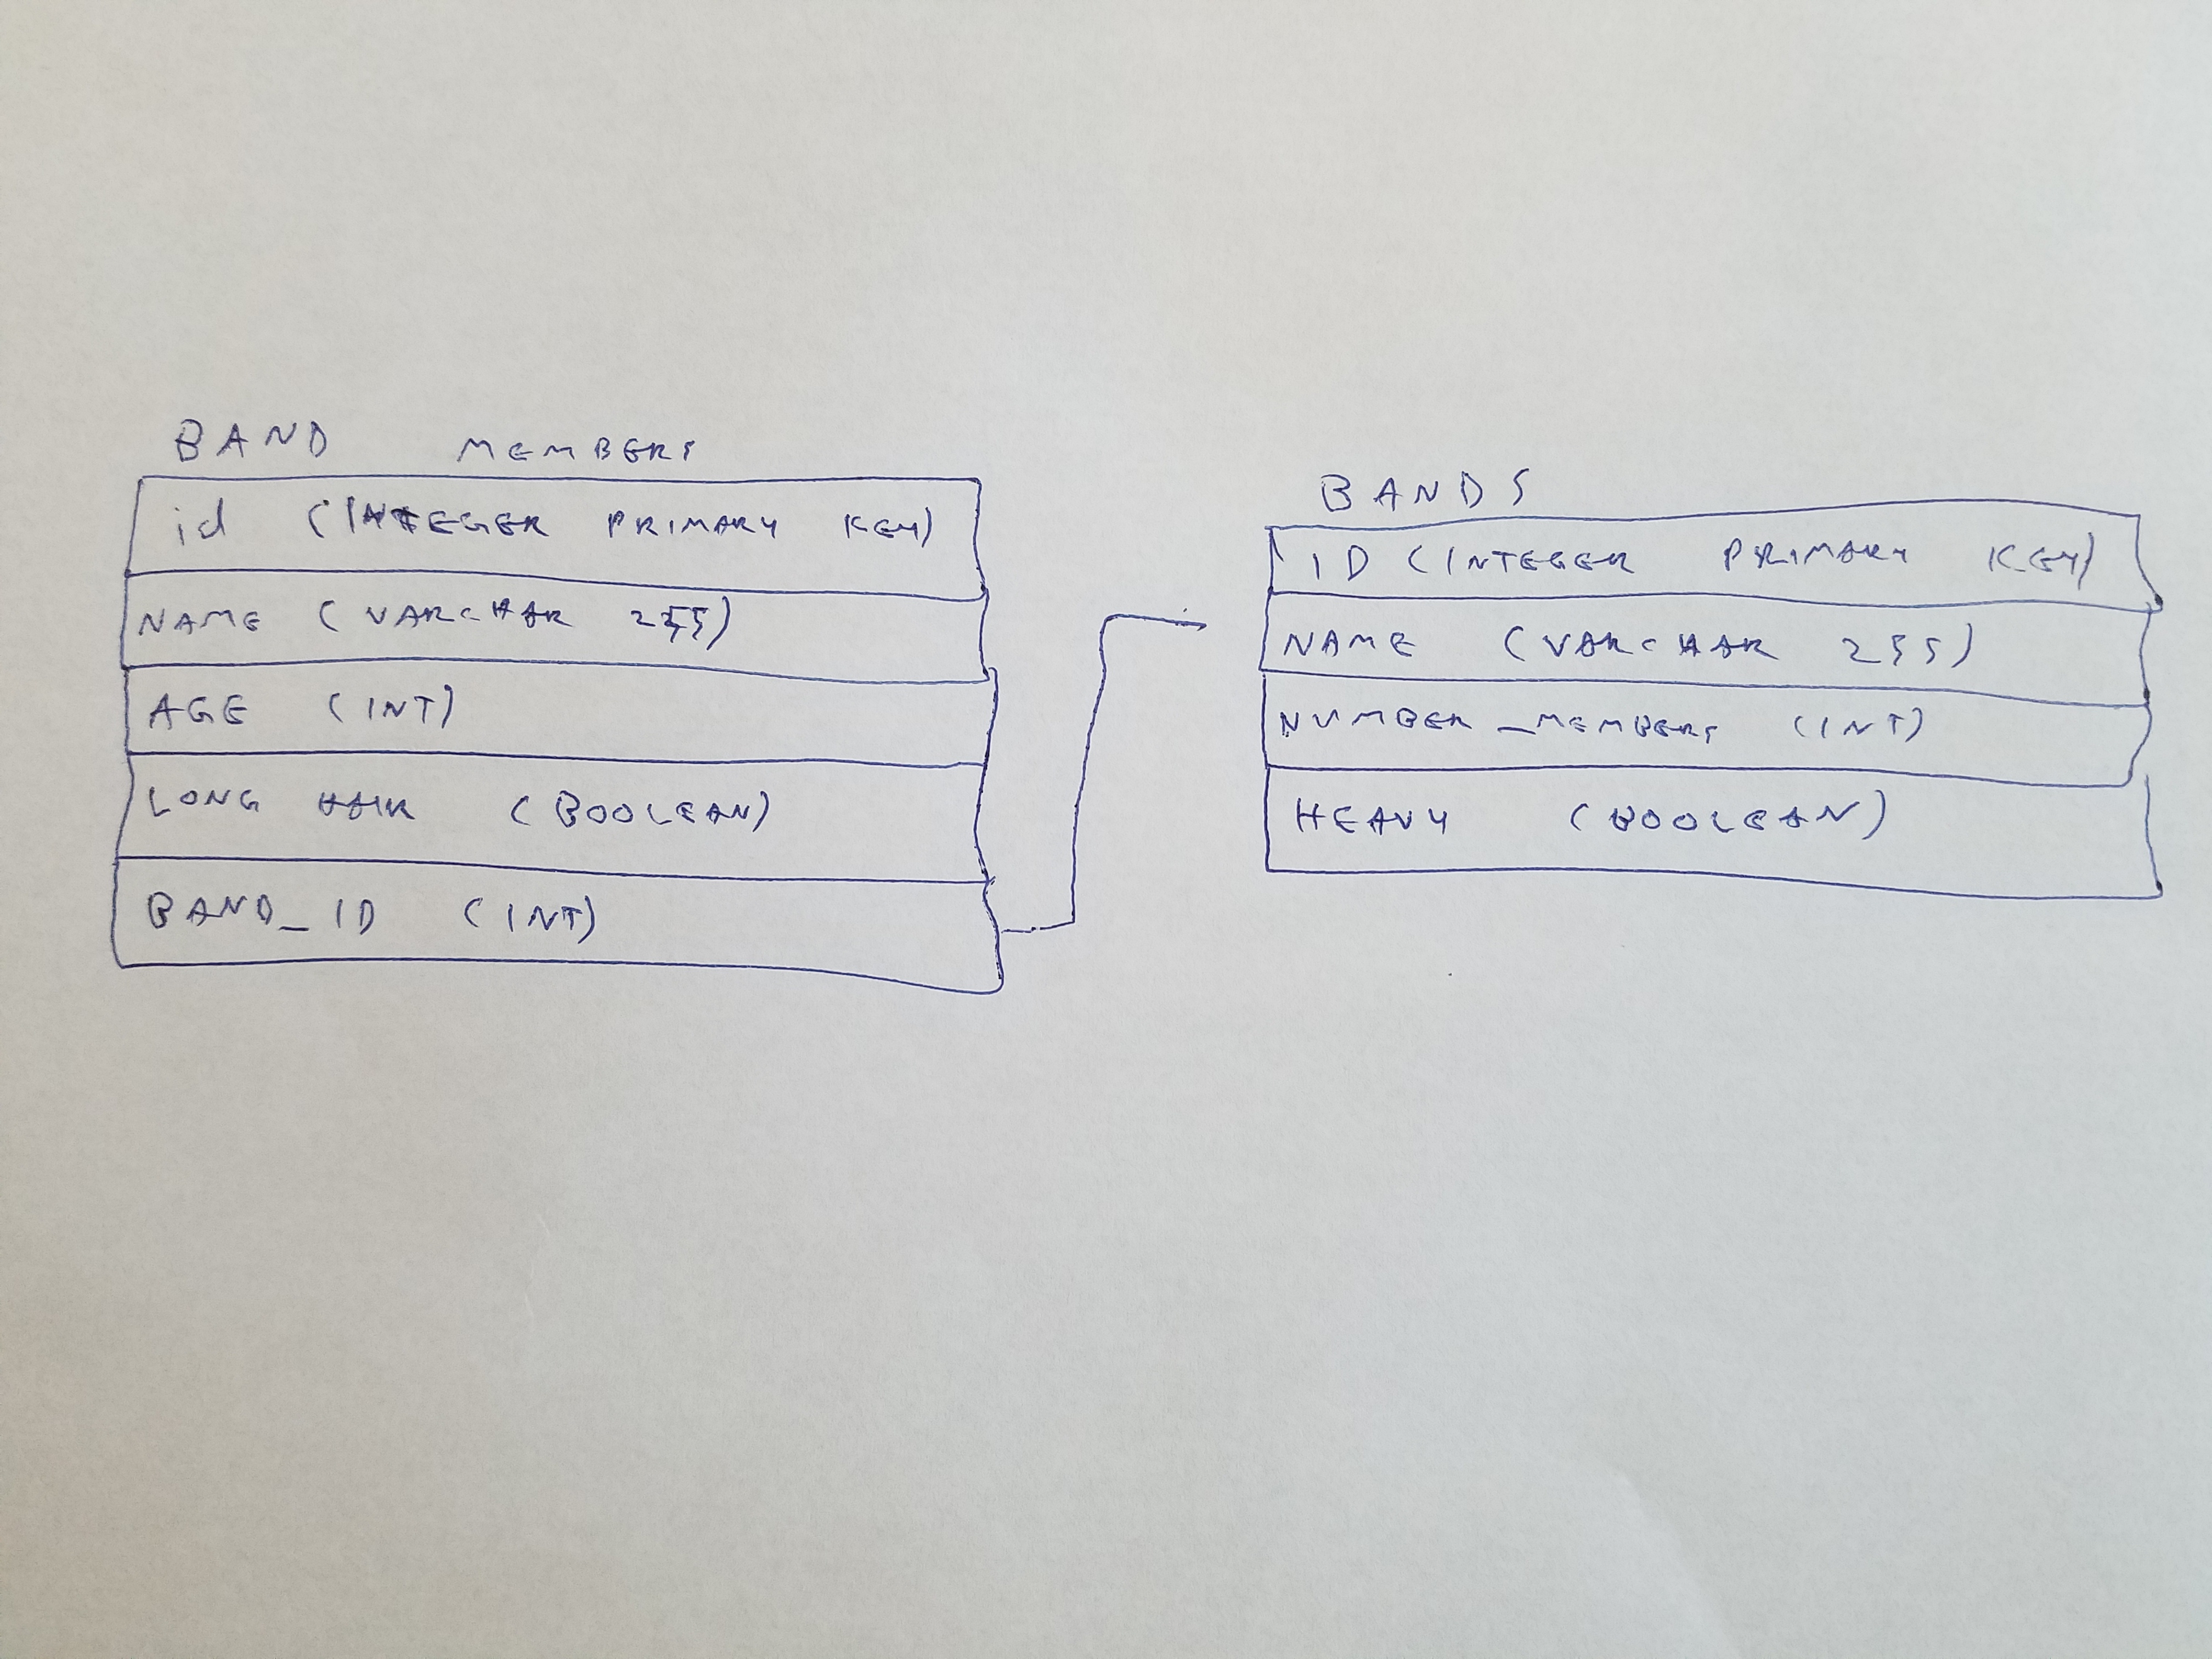 BAND MEMBERS
id (INTEGER PRIMARY KEY)
NAME (VARCHAR 255)
AGE (INT)
LONG HAIR (BOOLEAN)
BAND_ID (INT)
BANDS
ID (INTEGER PRIMARY KEY)
NAME (VARCHAR 255)
NUMBER_MEMBERS (INT)
HEAVY (BOOLEAN)